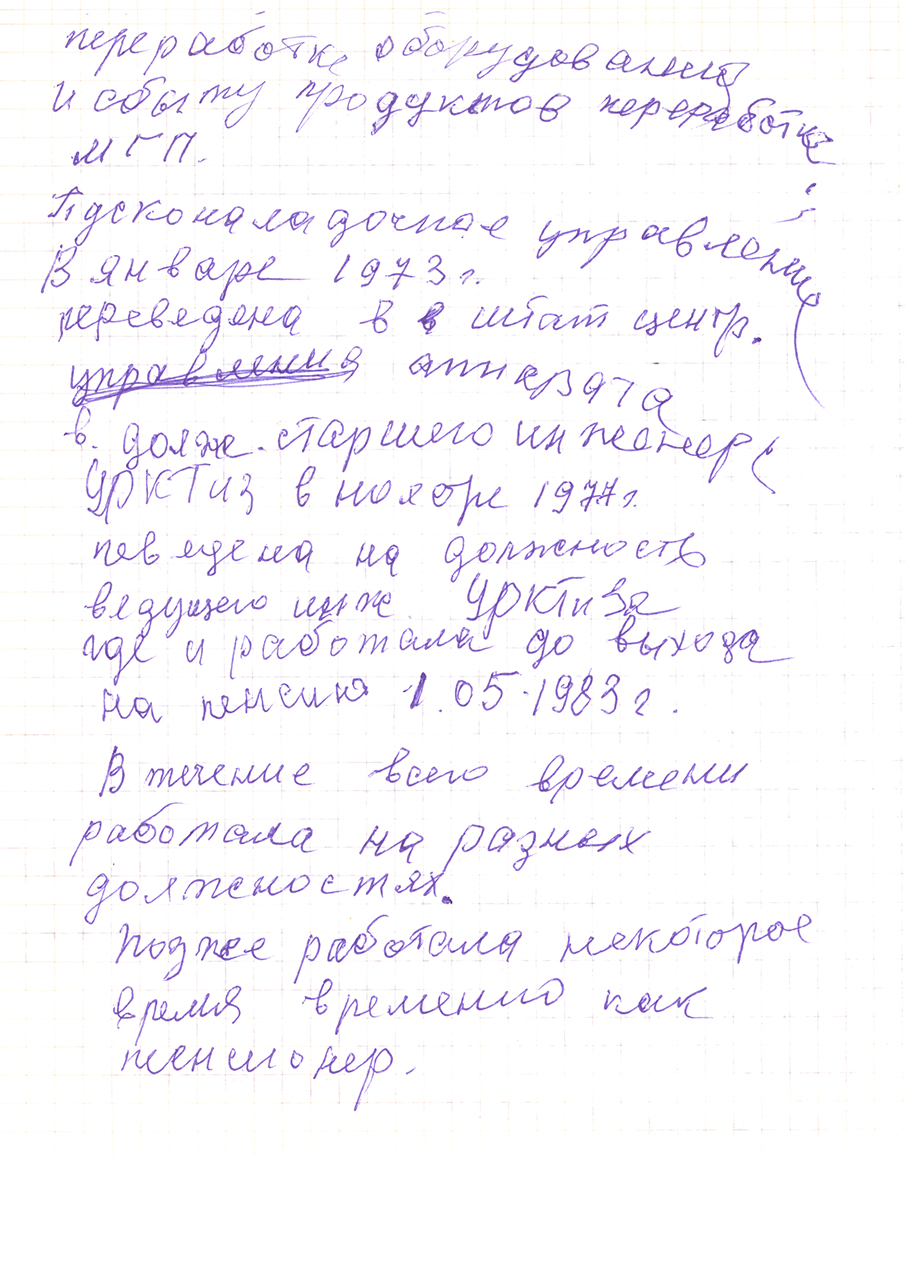 переработке оборудований
и сбыту продуктов переработки
МГП.
Пусконаладочное управление
В январе 1973 г.
переведена в в штат центр.
управления аппарата
в. долж. старшего инженера
УРКТиЗ в ноябре 1977 г.
певедена на должность
ведущего инж УРКТиЗа
где и работала до выхода
на пенсию 1.05.1983 г.
В течение всего времени
работала на разных
должностях.
Позже работала некоторое
время временно как
пенсионер.